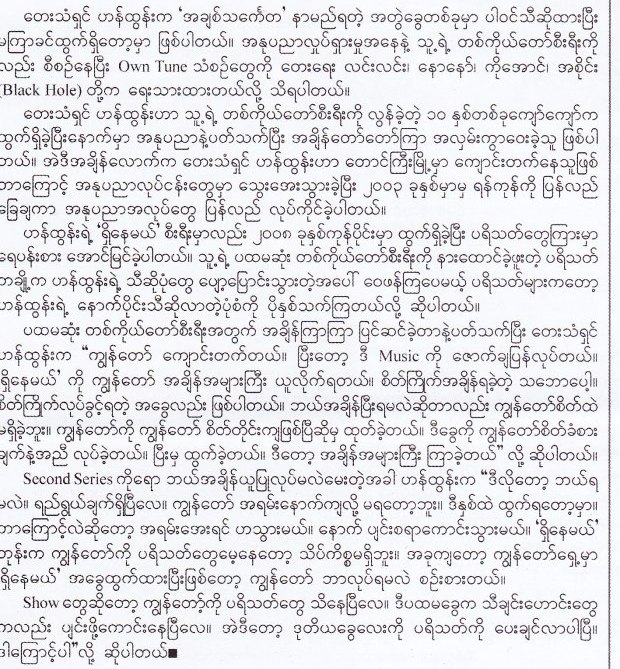 တေးသံရှင် ဟန်ထွန်းက ‘အချစ်သင်္ကေတ’ နာမည်ရတဲ့ အတွဲခွေတစ်ခုမှာ ပါဝင်သီဆိုထားပြီး
မကြာခင်ထွက်ရှိတော့မှာ ဖြစ်ပါတယ်။ အနုပညာလှုပ်ရှားမှုအနေနဲ့ သူ့ရဲ့ တစ်ကိုယ်တော်စီးရီးကို
လည်း စီစဉ်နေပြီး Own Tune သံစဉ်တွေကို တေးရေး လင်းလင်း၊ နောနော်၊ ကိုအောင်၊ အစိုင်း
(Black Hole) တို့က ရေးသားထားတယ်လို့ သိရပါတယ်။
တေးသံရှင် ဟန်ထွန်းဟာ သူ့ရဲ့ တစ်ကိုယ်တော်စီးရီးကို လွန်ခဲ့တဲ့ ၁၀ နှစ်တစ်ခုကျော်ကျော်က
ထွက်ရှိခဲ့ပြီးနောက်မှာ အနုပညာနဲ့ပတ်သက်ပြီး အချိန်တော်တော်ကြာ အလှမ်းကွာဝေးခဲ့သူ ဖြစ်ပါ
တယ်။ အဲဒီအချိန်လောက်က တေးသံရှင် ဟန်ထွန်းဟာ တောင်ကြီးမြို့မှာ ကျောင်းတက်နေသူဖြစ်
တာကြောင့် အနုပညာလုပ်ငန်းတွေမှာ သွေးအေးသွားခဲ့ပြီး ၂၀၀၃ ခုနှစ်မှာမှ ရန်ကုန်ကို ပြန်လည်
ခြေချကာ အနုပညာအလုပ်တွေ ပြန်လည် လုပ်ကိုင်ခဲ့ပါတယ်။
ဟန်ထွန်းရဲ့ ‘ရှိနေမယ်’ စီးရီးမှာလည်း ၂၀၀၈ ခုနှစ်ကုန်ပိုင်းမှာ ထွက်ရှိခဲ့ပြီး ပရိသတ်တွေကြားမှာ
ရေပန်းစား အောင်မြင်ခဲ့ပါတယ်။ သူ့ရဲ့ ပထမဆုံး တစ်ကိုယ်တော်စီးရီးကို နားထောင်ခဲ့ဖူးတဲ့ ပရိသတ်
တချို့က ဟန်ထွန်းရဲ့ သီဆိုပုံတွေ ပျော့ပြောင်းသွားတဲ့အပေါ် ဝေဖန်ကြပေမယ့် ပရိသတ်များကတော့
ဟန်ထွန်းရဲ့ နောက်ပိုင်းသီဆိုလာတဲ့ပုံစံကို ပိုနှစ်သက်ကြတယ်လို့ ဆိုပါတယ်။
ပထမဆုံး တစ်ကိုယ်တော်စီးရီးအတွက် အချိန်ကြာကြာ ပြင်ဆင်ခဲ့တာနဲ့ပတ်သက်ပြီး တေးသံရှင်
ဟန်ထွန်းက “ကျွန်တော် ကျောင်းတက်တယ်။ ပြီးတော့ ဒီ Music ကို ဇောက်ချပြန်လုပ်တယ်။
‘ရှိနေမယ်’ ကို ကျွန်တော် အချိန်အများကြီး ယူလိုက်ရတယ်။ စိတ်ကြိုက်အချိန်ရခဲ့တဲ့ သဘောပေါ့။
စိတ်ကြိုက်လုပ်ခွင့်ရတဲ့ အခွေလည်း ဖြစ်ပါတယ်။ ဘယ်အချိန်ပြီးရမလဲဆိုတာလည်း ကျွန်တော်စိတ်ထဲ
မရှိခဲ့ဘူး။ ကျွန်တော်ကို ကျွန်တော် စိတ်တိုင်းကျဖြစ်ပြီဆိုမှ ထုတ်ခဲ့တယ်။ ဒီခွေကို ကျွန်တော်စိတ်ခံစား
ချက်နဲ့အညီ လုပ်ခဲ့တယ်။ ပြီးမှ ထွက်ခဲ့တယ်။ ဒီတော့ အချိန်အများကြီး ကြာခဲ့တယ်” လို့ ဆိုပါတယ်။
Second Series ကိုရော ဘယ်အချိန်ယူပြုလုပ်မလဲမေးတဲ့အခါ ဟန်ထွန်းက “ဒီလိုတော့ ဘယ်ရ
မလဲ။ ရည်ရွယ်ချက်ရှိပြီလေ။ ကျွန်တော် အရမ်းနောက်ကျလို့ မရတော့ဘူး။ ဒီနှစ်ထဲ ထွက်ရတော့မှာ။
ဘာကြောင့်လဲဆိုတော့ အရမ်းအေးရင် ဟသွားမယ်။ နောက် ပျင်းစရာကောင်းသွားမယ်။ ‘ရှိနေမယ်’
တုန်းက ကျွန်တော်ကို ပရိသတ်တွေမေ့နေတော့ သိပ်ကိစ္စမရှိဘူး။ အခုကျတော့ ကျွန်တော်ရှေ့မှာ
‘ရှိနေမယ်’ အခွေထွက်ထားပြီးဖြစ်တော့ ကျွန်တော် ဘာလုပ်ရမလဲ စဉ်းစားတယ်။
Show တွေဆိုတော့ ကျွန်တော့်ကို ပရိသတ်တွေ သိနေပြီလေ။ ဒီပထမခွေက သီချင်းဟောင်းတွေ
ကလည်း ပျင်းဖို့ကောင်းနေပြီလေ။ အဲဒီတော့ ဒုတိယခွေလေးကို ပရိသတ်ကို ပေးချင်လာပါပြီ။
ဒါကြောင့်ပါ”လို့ ဆိုပါတယ်■